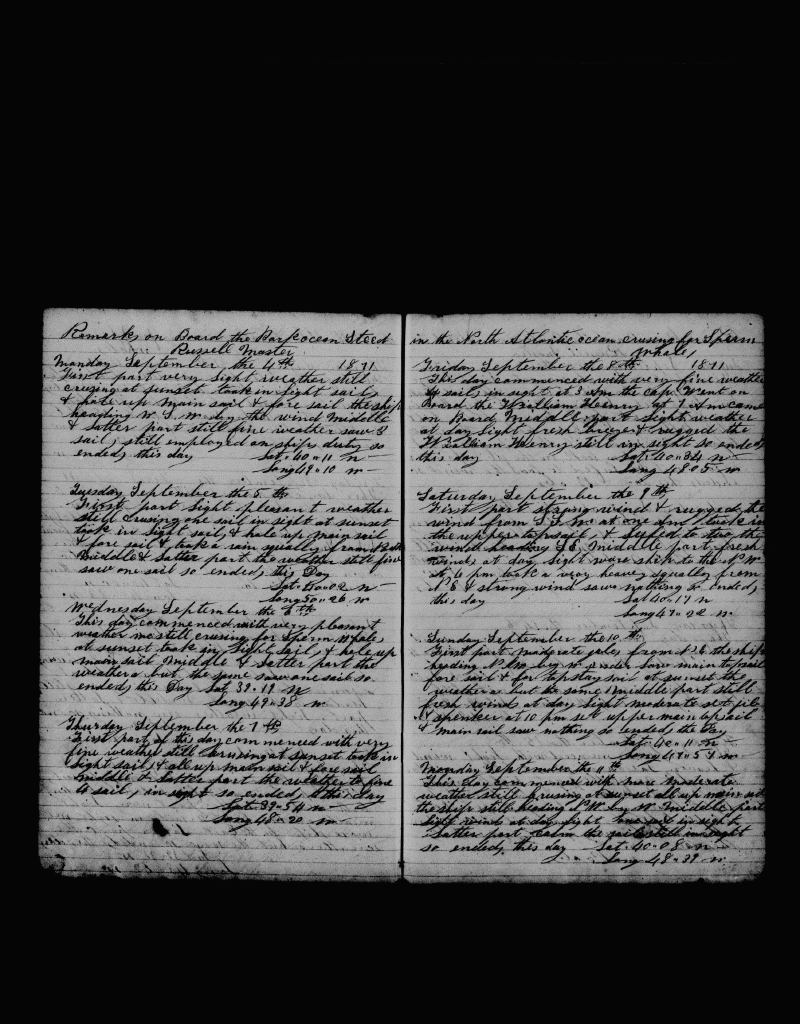 Remarks on Board the Bark ocean Steed
Russell Master
Monday September the 4th 1871
First part very light weather still
crusing at sunset took in light sails
& hale up main sail & fore sail the ship
heading W. S. W. by the wind Middle
& latter part still fine weather saw 3
sails still employed on ships duty so
ended this day Lat. 40=11 N
Long 49=10 W
Tuesday September the 5th
First part light pleasant weather
still crusing one sail in sight at sunset
took in light sails & hale up main sail
& fore sail & took a rain squally from
Middle & latter part the weather still fine
saw one sail so ended this Day
Lat. 40=02 N
Long 50=26 W
Wednesday September the 6th
This day commenced with very pleasant
weather we still crusing for Sperm Whales
at sunset took in light sails & hale up
main sail Middle & latter part the
weathera but the same saw one sail so
ended this Day Lat 39=19 N
Long 49=38 W
Thursday September the 7th
First part of this day commenced with very
fine weather still crusing at sunset took in
light sails & all up main sail & fore sail
middle & latter part the weather to fine
4 sails in sight so ended this day
Lat 39=54 N
Long 48=20 W
in the North Atlantic ocean crusing for Sperm
Whales
Friday September the 8th 1871
This day commenced with very fine weather
4 sails in sight at 3 Am the Capt. Went on
Board the William Henry at 7 Am came
on Board Middle part light weather
at day light fresh breeze & rugged the
William Henry still in sight so ended
this day Lat. 40=34 N
Long 48=05 W
Saturday September the 9th
First part strong wind & rugged the
wind from S. S. W. at one Am tuck in
the upper topsails &
wind heading S.E. Middle part fresh
winds at day light wore ship to the N. W.
At 6 pm took a very heavy squally from
N. E & strong wind saw nothing so ended
this day Lat 40=17 N
Long 47=22 W
Sunday September the 10th
First part moderate gales from N. E. the ship
heading N.N.W. by W saw main topsail
fore sail & for topstaysail at sunset the
weathera but the same Middle part still
fresh winds at day light moderate set jib
& spenker at 10 pm set upper main topsail
& main sail saw nothing so ended the Day
Lat. 40=11 N
Long 47=57 W
Monday September the 11th
This day commenced with more moderate
weather still crusing at sunset all up main sail
the ship still heading N.W. by W. Middle part
light winds at day light one sail in sight
latter part calm the sail still in sight
so ended this day Lat. 40=08 N
Long 48=39 W